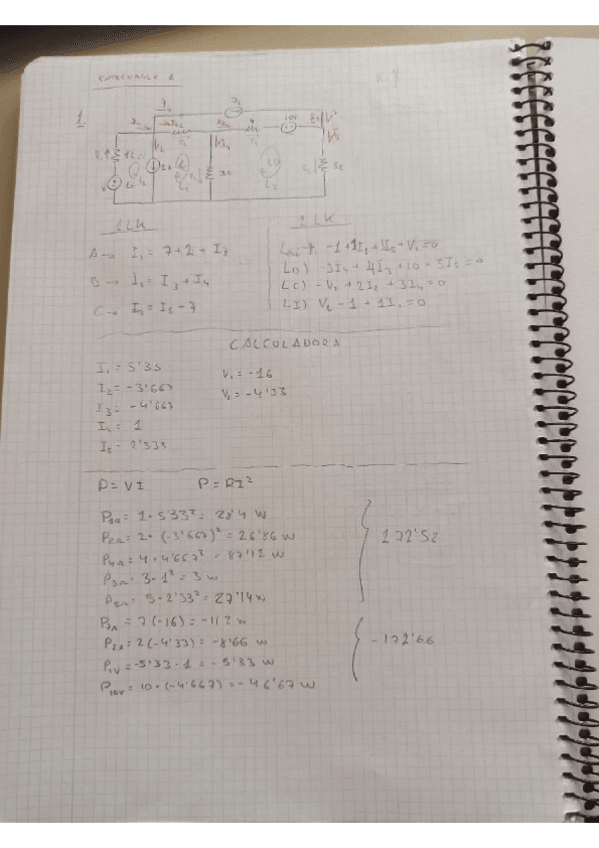 ENTREGABLE 1
1.
1LK
2LK
A → I₁ = 7 + 2 + I₂
B → I₂ = I₃ + I₄
C → I₃ = I₅ - 7
-1 + 1I₁ + 5I₅ - V₁ = 0
-3I₄ + 4I₃ + 10 + 5I₅ = 0
LC) -V₂ + 2I₂ + 3I₄ = 0
V₂ - 1 + 1I₁ = 0
CALCULADORA
I₁ = 5'33
I₂ = -3'667
I₃ = -4'667
I₄ = 1
I₅ = 2'333
V₁ = -16
V₂ = -4'33
P = VI P = RI²
P₁Ω = 1 · 5'33² = 28'4 W
P₂Ω = 2 · (-3'667)² = 26'86 W
P₄Ω = 4 · 4'667² = 87'12 W
P₃Ω = 3 · 1² = 3 W
P₅Ω = 5 · 2'33² = 27'14 W
172'52
P₇A = 7(-16) = -112 W
P₂A = 2(-4'33) = -8'66 W
P₁V = -5'33 · 1 = -5'33 W
P₁₀V = 10 · (-4'667) = -46'67 W
-172'66